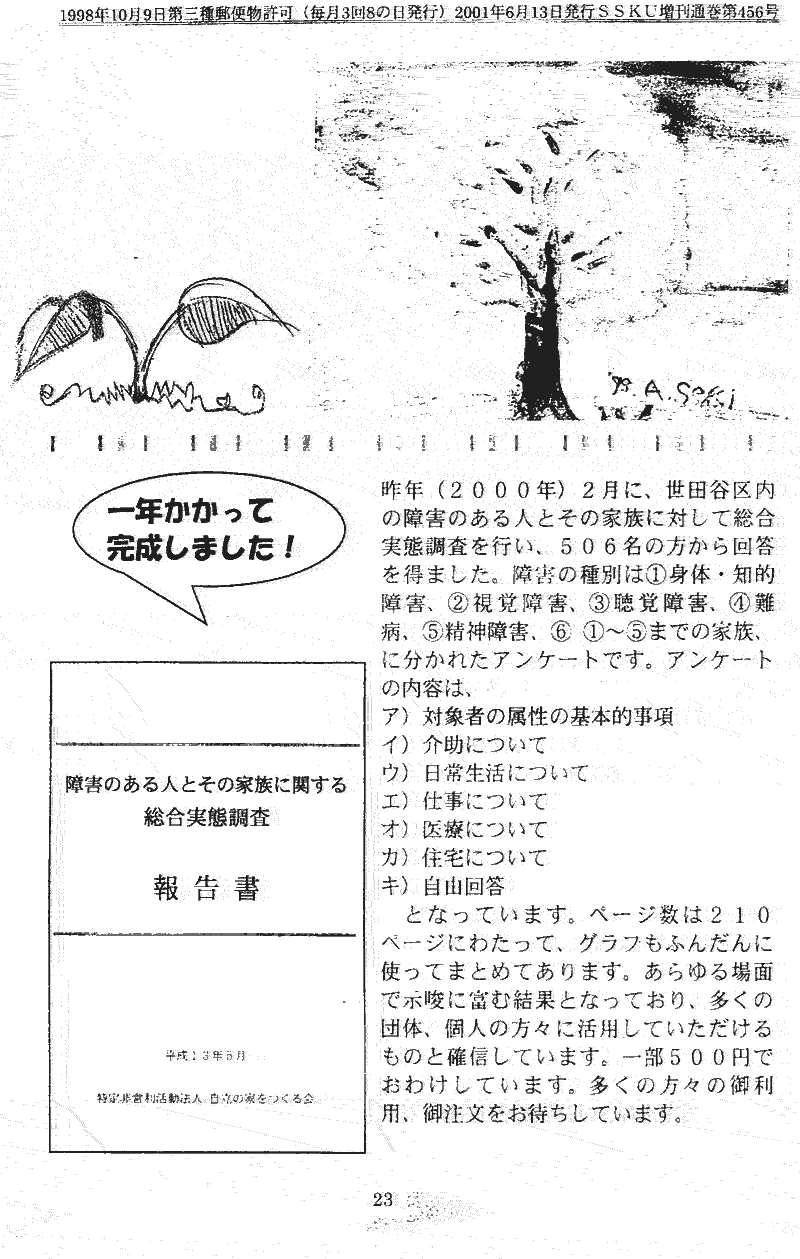 1998年10月9日第三種郵便物許可（毎月3回8の日発行）2001年6月13日発行ＳＳＫＵ増刊通巻第456号
A.Seki
一年かかって
完成しました！
障害のある人とその家族に関する
総合実態調査
報告書
平成13年5月
特定非営利活動法人 自立の家をつくる会
昨年（２０００年）２月に、世田谷区内
の障害のある人とその家族に対して総合
実態調査を行い、５０６名の方から回答
を得ました。障害の種別は①身体・知的
障害、②視覚障害、③聴覚障害、④難
病、⑤精神障害、⑥ ①～⑤までの家族、
に分かれたアンケートです。アンケート
の内容は、
ア）対象者の属性の基本的事項
イ）介助について
ウ）日常生活について
エ）仕事について
オ）医療について
カ）住宅について
キ）自由回答
　となっています。ページ数は２１０
ページにわたって、グラフもふんだんに
使ってまとめてあります。あらゆる場面
で示唆に富む結果となっており、多くの
団体、個人の方々に活用していただける
ものと確信しています。一部５００円で
おわけしています。多くの方々の御利
用、御注文をお待ちしています。
23